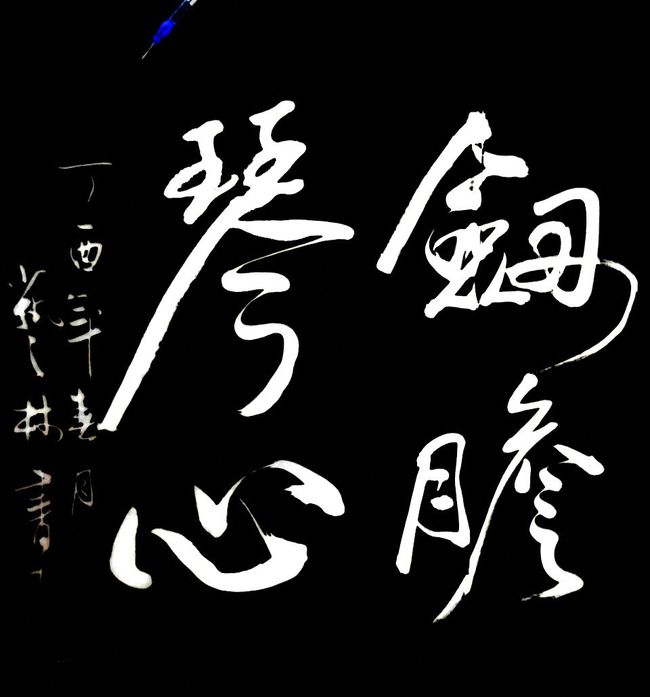 劒膽
琴心
丁酉年春月
藝林書